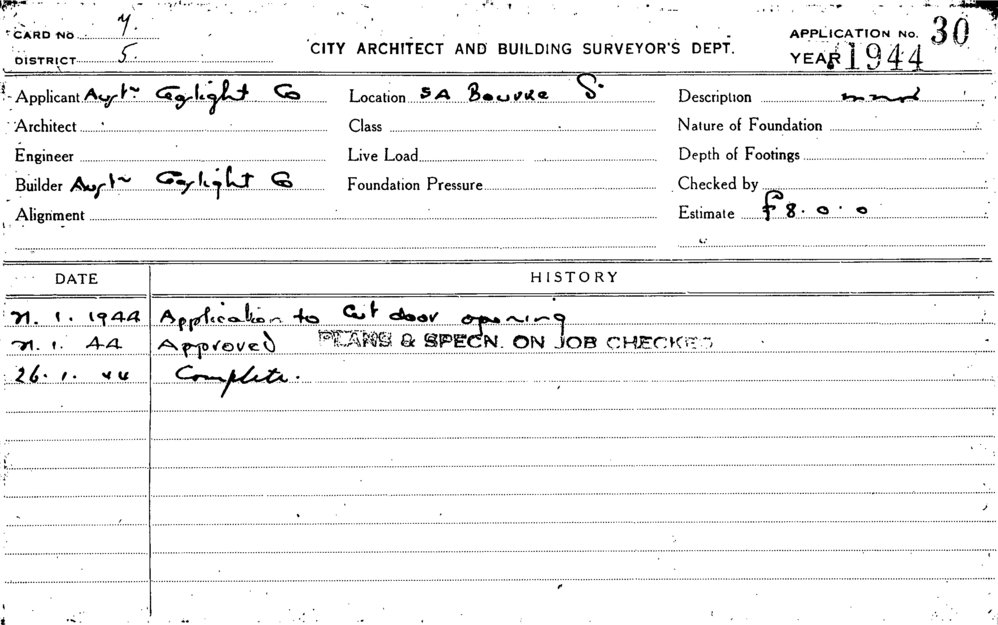 CARD NO 7.
DISTRICT 5.
CITY ARCHITECT AND BUILDING SURVEYOR'S DEPT.
APPLICATION No. 30
YEAR 1944
Applicant Gaslight Co
Location 5A Bourke S.
Description
Architect
Class
Nature of Foundation
Engineer
Live Load
Depth of Footings
Builder Gaslight Co
Foundation Pressure
Checked by
Alignment
Estimate £8.0.0
DATE HISTORY
21. 1. 1944 Application to Cut door opening
21. 1. 44 Approved PLANS & SPECN. ON JOB CHECKED
26. 1. 44 Complete.